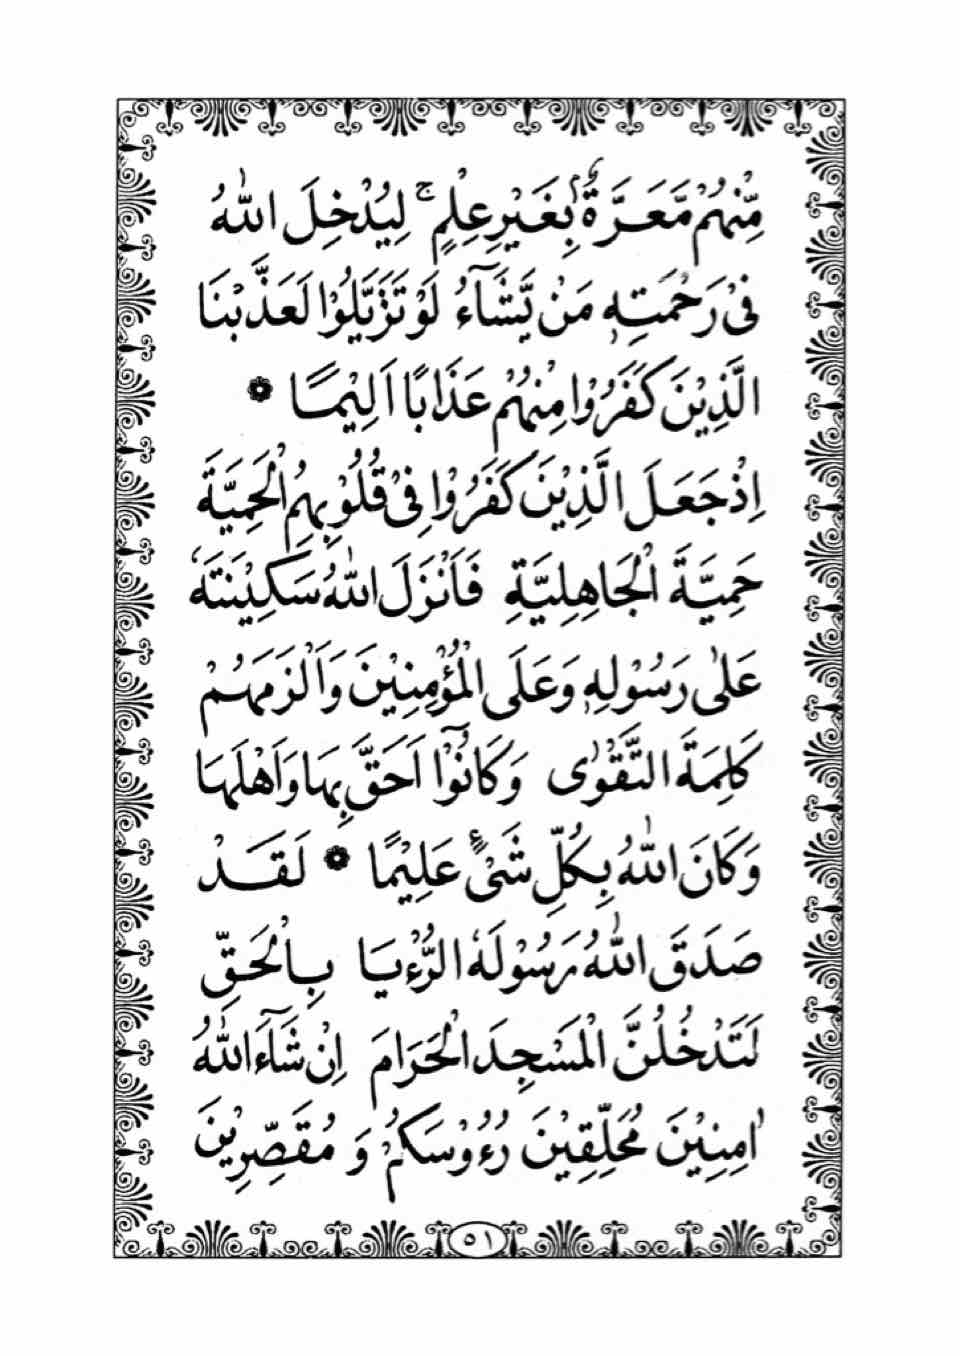 مِّنْهُمْ مَّعَرَّةٌۢ بِغَيْرِ عِلْمٍ ۚ لِيُدْخِلَ اللّٰهُ
فِيْ رَحْمَتِهٖ مَنْ يَّشَآءُ لَوْ تَزَيَّلُوْا لَعَذَّبْنَا
الَّذِيْنَ كَفَرُوْا مِنْهُمْ عَذَابًا اَلِيْمًا ۞
اِذْ جَعَلَ الَّذِيْنَ كَفَرُوْا فِيْ قُلُوْبِهِمُ الْحَمِيَّةَ
حَمِيَّةَ الْجَاهِلِيَّةِ فَاَنْزَلَ اللّٰهُ سَكِيْنَتَهٗ
عَلٰى رَسُوْلِهٖ وَعَلَى الْمُؤْمِنِيْنَ وَاَلْزَمَهُمْ
كَلِمَةَ التَّقْوٰى وَكَانُوْٓا اَحَقَّ بِهَا وَاَهْلَهَا
وَكَانَ اللّٰهُ بِكُلِّ شَيْءٍ عَلِيْمًا ۞ لَقَدْ
صَدَقَ اللّٰهُ رَسُوْلَهُ الرُّءْيَا بِالْحَقِّ
لَتَدْخُلُنَّ الْمَسْجِدَ الْحَرَامَ اِنْ شَآءَ اللّٰهُ
اٰمِنِيْنَ مُحَلِّقِيْنَ رُءُوْسَكُمْ وَ مُقَصِّرِيْنَ
٥١